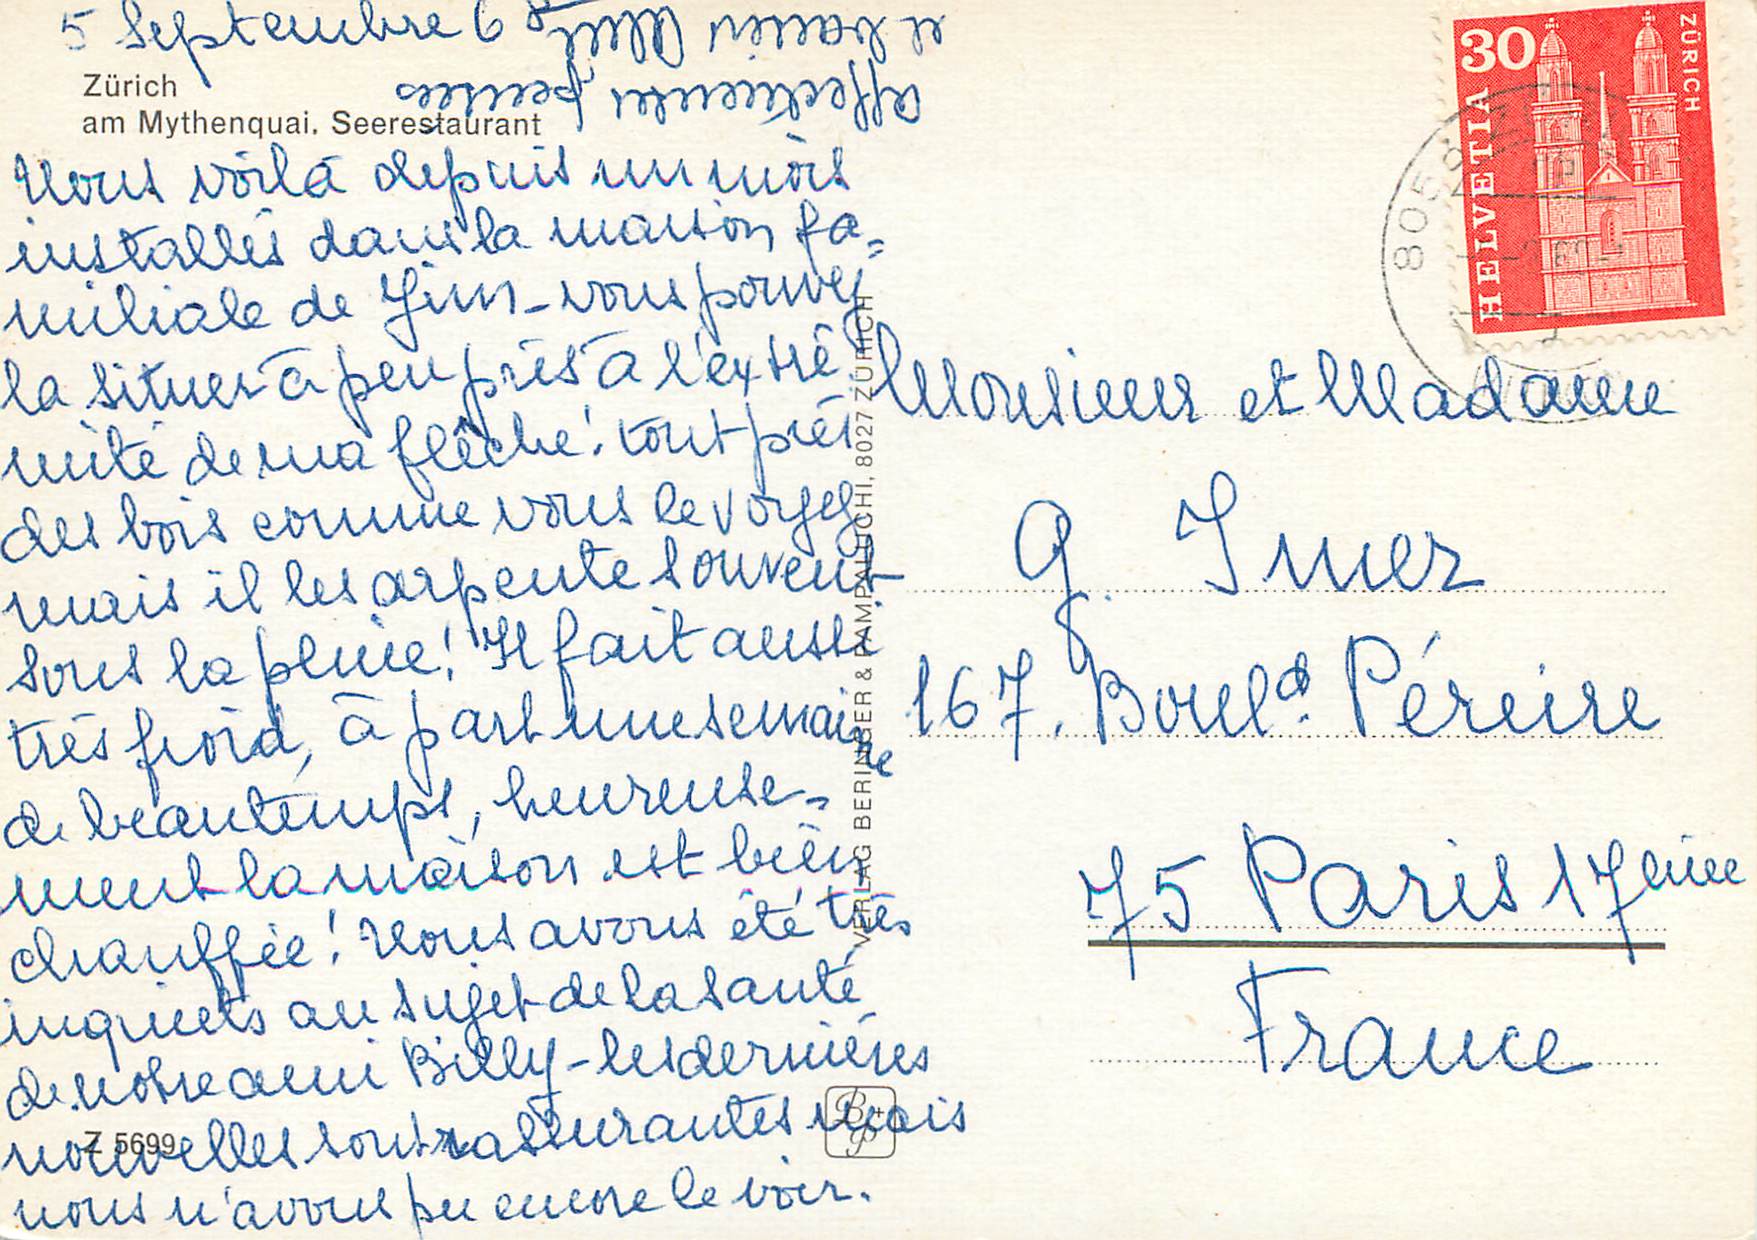 5 Septembre 6
Zürich
am Mythenquai. Seerestaurant
Nous voilà depuis un mois
installés dans la maison fa=
miliale de Jim – vous pouvez
la situer à peu près à l'extrê
mité de ma flèche! tout près
des bois comme vous le voyez
mais il les arpente souvent
sous la pluie! Il fait aussi
très froid, à part une semaine
de beau temps, heureuse=
ment la maison est bien
chauffée! Nous avons été très
inquiets au sujet de la santé
de notre ami Billy – les dernières
nouvelles sont rassurantes mais
nous n'avons pu encore le voir.
Z 5699
affectueuses pensées
et
VERLAG BERINGER & PAMPALUCHI, 8027 ZÜRICH
B+P
30
HELVETIA
ZÜRICH
8058
Monsieur et Madame
G. Imer
167, Bould. Péreire
75 Paris 17ème
France